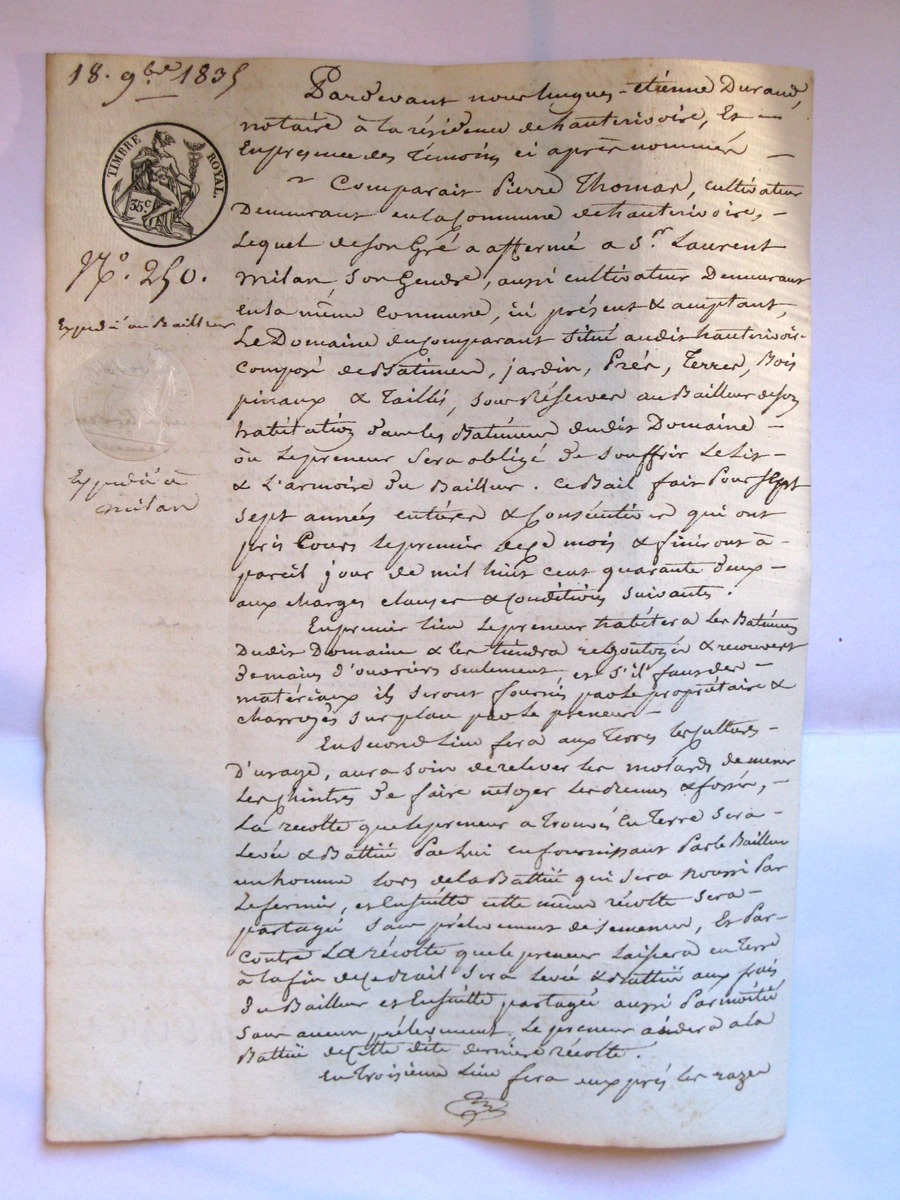 18. 9bre 1835
TIMBRE ROYAL.
35c
No. 250.
Expédié au Bailleur
Expédié à
milan
Pardevant nous hugues-étienne Durand,
notaire à la résidence de hauterivoire, Et
En presence des Témoins ci après nommés
Comparait Pierre Thomas, cultivateur
Demeurant en la Commune de hauterivoire,
Lequel de son Gré a affermé a Sr. Laurent
milan, son Gendre, aussi cultivateur Demeurant
en la même commune, ici présent & acceptant,
Le Domaine du comparant situé audit hauterivoire
Composé de Batimens, jardin, Prés, Terres, Bois
pinaux & Taillis, sous Réserves au Bailleur de son
habitation dans les Batimens dudit Domaine
où le preneur sera obligé de souffrir Le Lit
& L'armoire du Bailleur. Ce Bail fait Pour sept
sept années entières & Consécutives qui ont
pris Cours le premier de ce mois & finiront à
pareil jour de mil huit cent quarante deux
aux charges clauses & Conditions suivantes.
En premier lieu le preneur habitera les Batimens
Dudit Domaine & les tiendra regoutoyés & recouvert
de mains d'ouvriers seulement, et s'il faut des
matériaux ils seront fournis par le propriétaire &
charroyés sur place par le preneur
En second Lieu fera aux Terres les Cultures
D'usage, aura soin de relever les motards de mener
Les chintres de faire netoyer les drennes & fossés,
La récolte que le preneur a trouvés en Terre sera
Levée & Battue Par lui en fournissant Par le Bailleur
un homme lors de la Battue qui sera nourri Par
Le fermier, et Ensuitte cette même récolte sera
partagé sans prélevement de semences, Et Par
contre La récolte que le preneur laissera en Terre
à la fin de ce Bail sera Levée & Battue aux frais
du Bailleur et Ensuitte partagée aussi Par moitié
sans aucun prélevement. Le preneur aidera a la
Battue de Cette dite dernière récolte.
En Troisieme Lieu fera aux prés les razes